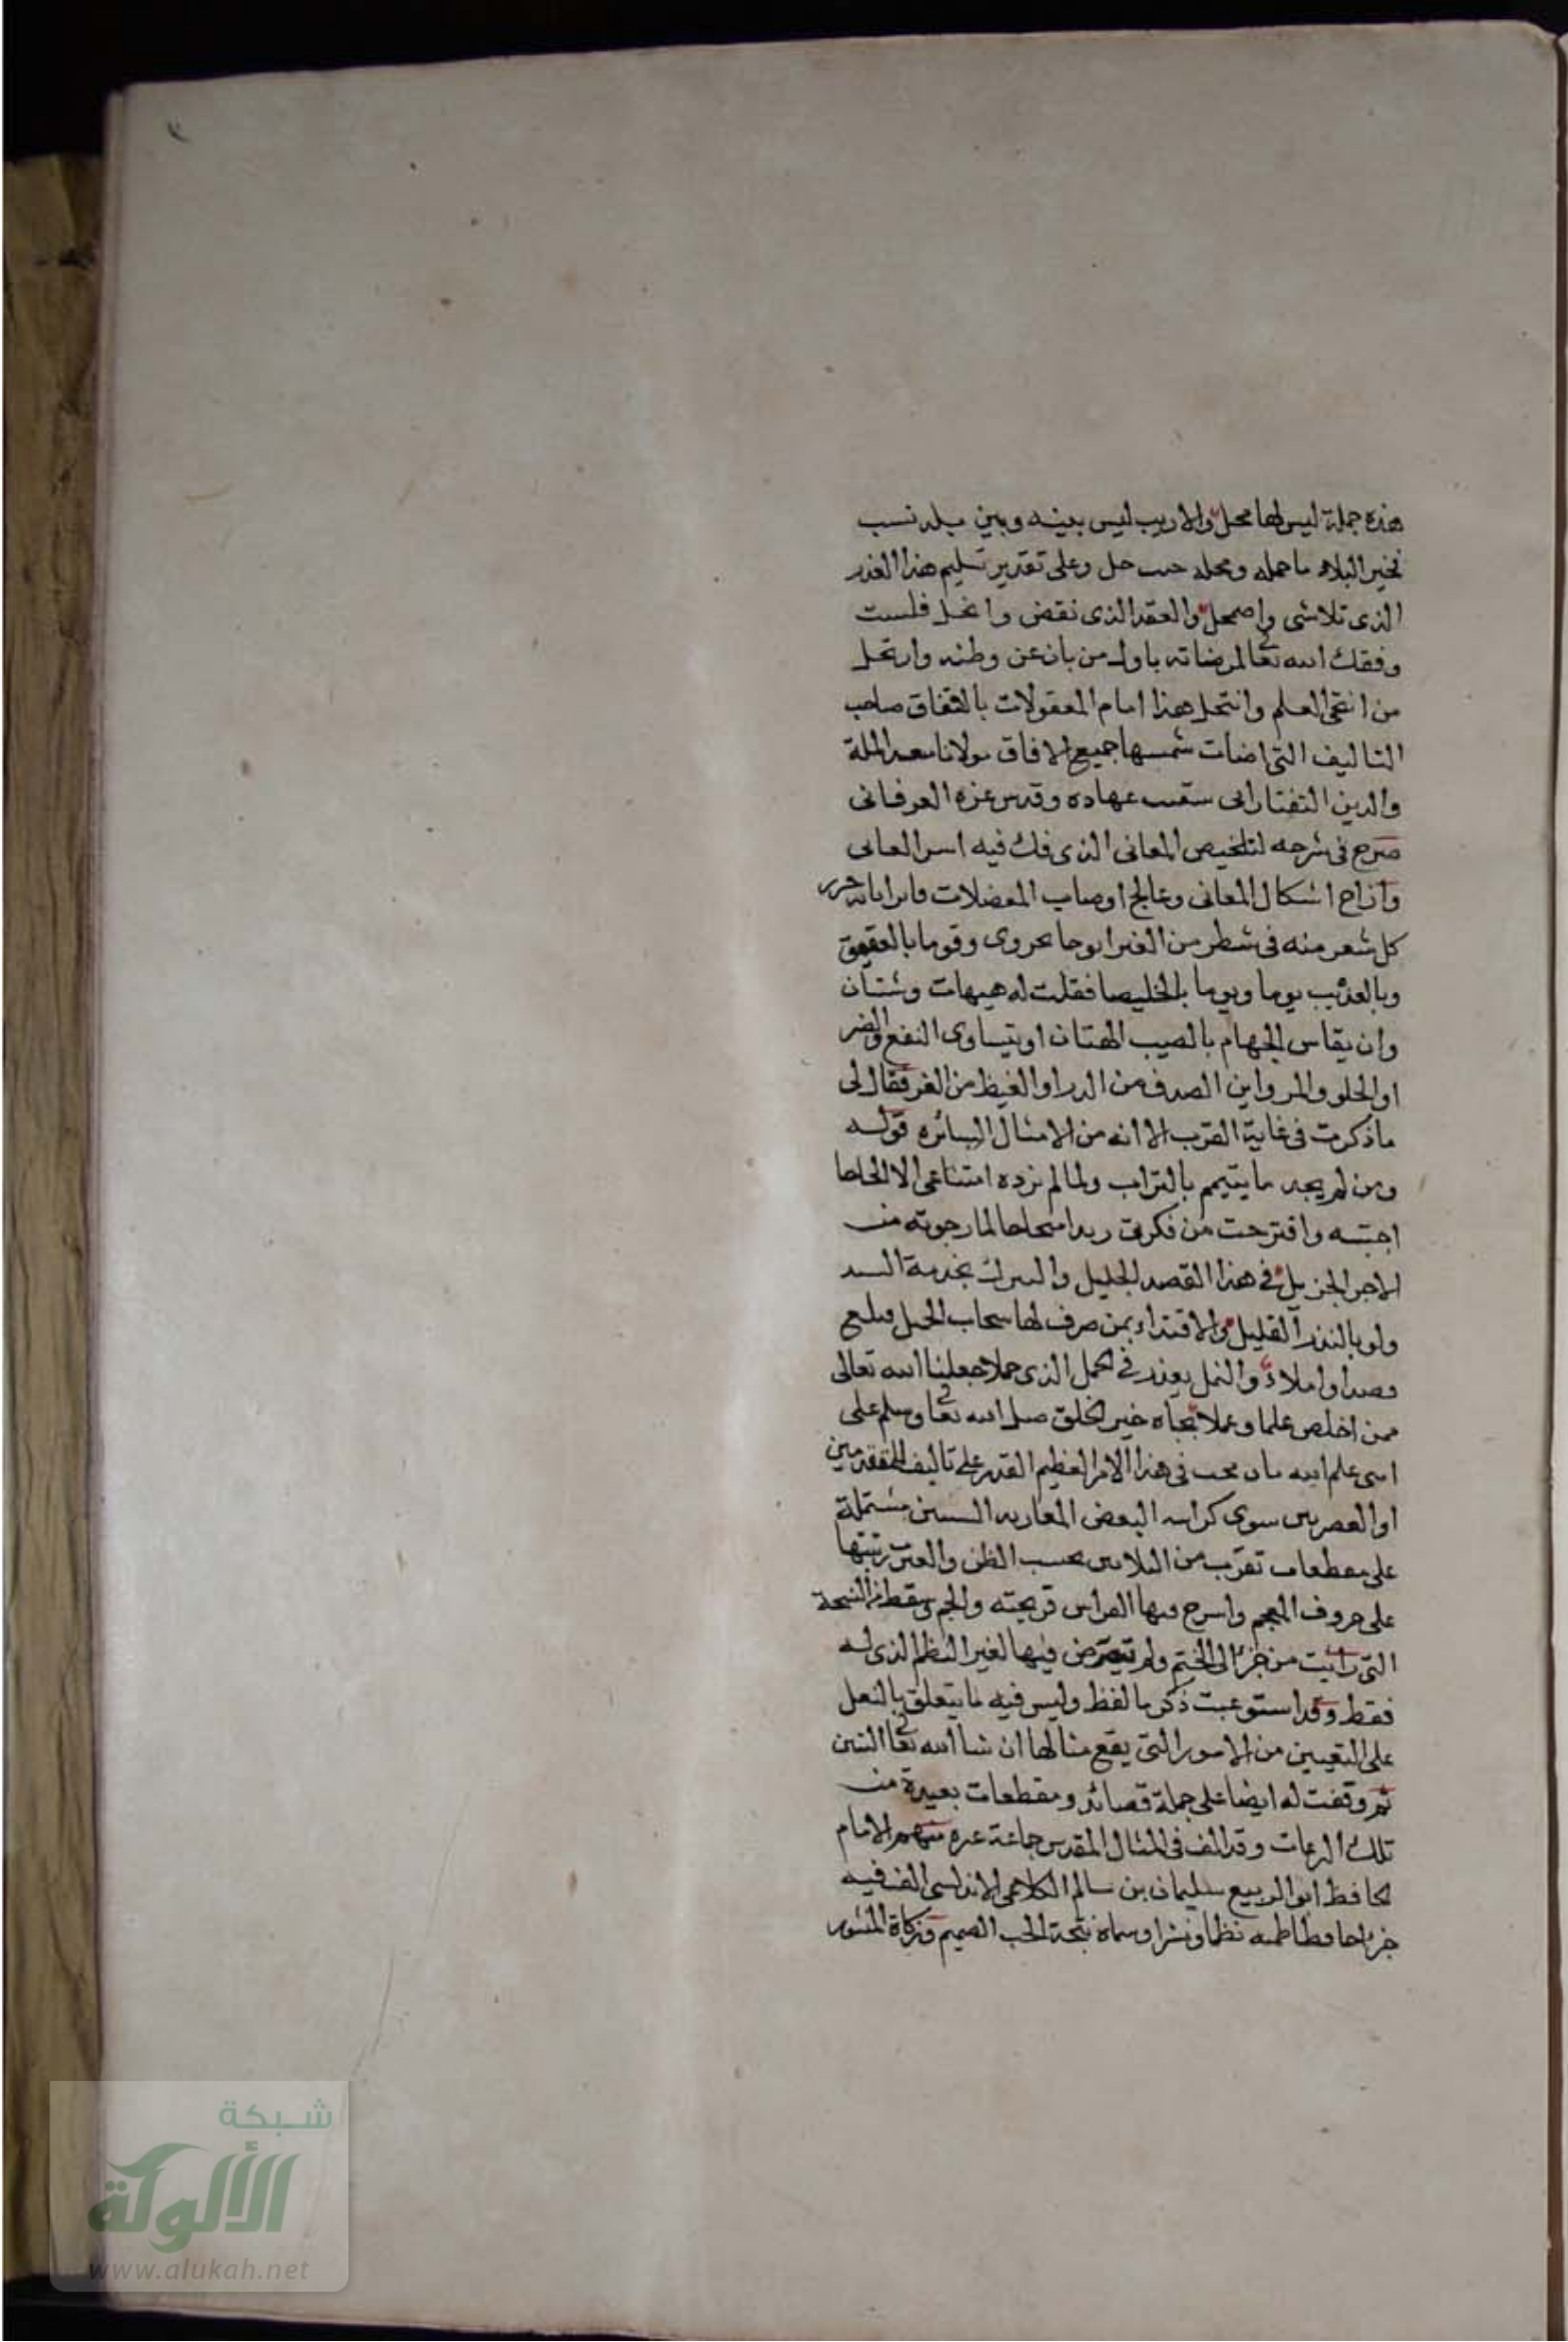 هذه جملة ليس لها محل والاريب ليس بينه وبين بلد نسب
فخير البلاد ما حمله ومحله حيث حل وعلى تقدير تسليم هذا العذر
الذى تلاشى واضمحل والعقد الذى نقض وانحل فلست
وفقك الله تعالى لمرضاته باول من بان عن وطنه وارتحل
من انتمى العلم وانتحل هذا امام المعقولات بالاتفاق صاحب
التاليف التى اضات شمسها جميع الافاق مولانا سعد الملة
والدين التفتازانى عهاده وقدس العرفانى
صرح فى شرحه لتلخيص المعانى الذى فك فيه اسر العانى
وازاح اشكال المعانى وعالج اوصاب المعضلات
كل شعر منه فى شطر من الغبرا يوما بحزوى ويوما بالعقيق
وبالعذيب يوما ويوما بالخليصا فقلت له هيهات وشتان
وان يقاس الجهام بالصيب الهتان او يتساوى النفع والضر
او الحلو والمر واين الصدف من الدر او الغيظ من الغر فقال لى
ما ذكرت فى غاية القرب الا انه من الامثال السائره قوله
ومن لم يجد ما يتيمم بالتراب ولما لم نزده امتناعى الا الحاحا
اجبته واقترحت من فكرتى لما رجوته من
الاجر الجزيل فى هذا القصد الجليل والتبرك بخدمة السيد
ولو بالنذر القليل والاقتداء بمن صرف لها سحاب
واملاء والنمل يعذر فى الحمل الذى حملا جعلنا الله تعالى
ممن اخلص علما وعملا بجاه خير الخلق صلى الله تعالى وسلم على
فى هذا الامر العظيم القدر على تاليف للمتقدمين
او العصريين سوى كراسه لبعض المغاربه مشتملة
على مقطعات تقرب من الثلاثين بحسب الظن رتبها
على حروف المعجم واسرج فيها قريحته والجم وسقط من النسخة
التى رايت من جزء الى الختم ولم تتعرض فيها لغير النظم الذى له
فقط وقد استوعبت ذكر ما لفظ وليس فيه ما يتعلق بالنعل
على التعيين من الامور التى يقع منا لها ان شا الله تعالى التبيين
ثم وقفت له ايضا على جملة قصائد ومقطعات بعيدة من
تلك وقد الف فى المثال المقدس جماعة غيره منهم الامام
الحافظ ابو الربيع سليمان بن سالم الكلاعى الاندلسى الف فيه
جزءا نظما ونثرا وسماه نتيجة الحب الصميم وزكاة المنثور
شبكة
الألوكة
www.alukah.net